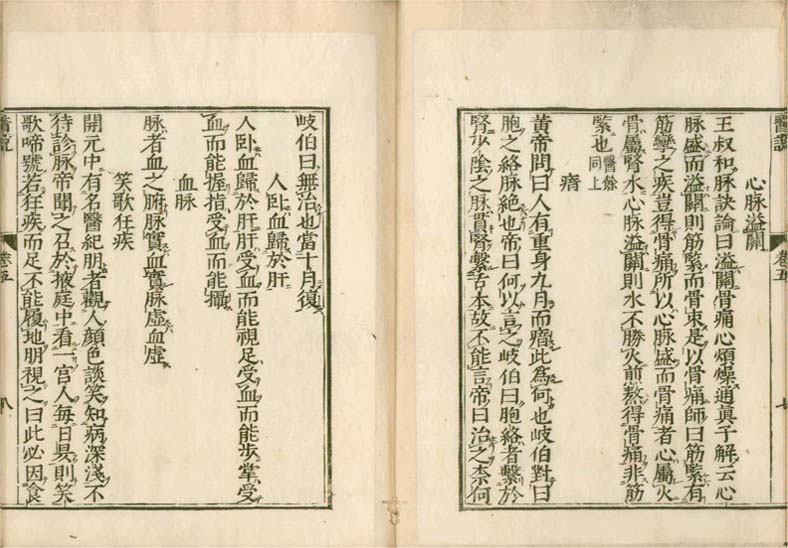 心脉溢關
王叔和脉訣論曰溢關骨痛心煩燥通眞子解云心
脉盛而溢關則筋緊而骨束是以骨痛師曰筋緊有
筋攣之疾豈得骨痛所以心脉盛而骨痛者心屬火
骨屬腎水心脉溢關則水不勝火煎熬得骨痛非筋
緊也醫餘同上
瘖
黃帝問曰人有重身九月而瘖此爲何也岐伯對曰
胞之絡脉絕也帝曰何以言之岐伯曰胞絡者繫於
腎少陰之脉貫腎繫舌本故不能言帝曰治之柰何
醫說
卷五
七
岐伯曰無治也當十月復
人臥血歸於肝
人臥血歸於肝肝受血而能視足受血而能步掌受
血而能握指受血而能攝
血脉
脉者血之腑脉實血實脉虛血虛
笑歌狂疾
開元中有名醫紀朋者觀人顏色談笑知病深淺不
待診脉帝聞之召於掖庭中看一宮人每日昃則笑
歌啼號若狂疾而足不能履地朋視之曰此必因食
醫說
卷五
八